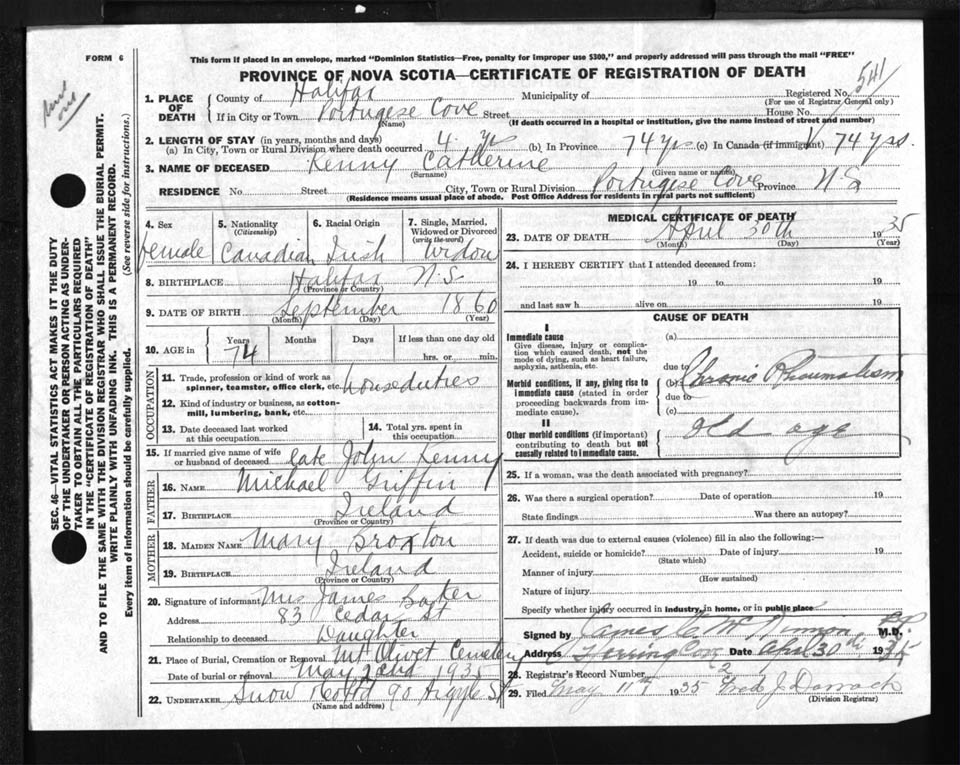 FORM 6
This form if placed in an envelope, marked "Dominion Statistics—Free, penalty for improper use $300," and properly addressed will pass through the mail "FREE"
PROVINCE OF NOVA SCOTIA—CERTIFICATE OF REGISTRATION OF DEATH
SEC. 46—VITAL STATISTICS ACT MAKES IT THE DUTY
OF THE UNDERTAKER OR PERSON ACTING AS UNDER-
TAKER TO OBTAIN ALL THE PARTICULARS REQUIRED
IN THE "CERTIFICATE OF REGISTRATION OF DEATH"
AND TO FILE THE SAME WITH THE DIVISION REGISTRAR WHO SHALL ISSUE THE BURIAL PERMIT.
WRITE PLAINLY WITH UNFADING INK. THIS IS A PERMANENT RECORD.
Every item of information should be carefully supplied. (See reverse side for Instructions.)
1. PLACE OF DEATH
County of Halifax Municipality of Registered No. 541
(For use of Registrar General only)
If in City or Town Portugese Cove Street House No.
(Name) (If death occurred in a hospital or institution, give the name instead of street and number)
2. LENGTH OF STAY (in years, months and days)
(a) In City, Town or Rural Division where death occurred 4 yrs (b) In Province 74 yrs (c) In Canada (if immigrant) 74 yrs.
3. NAME OF DECEASED Kenny Catherine
(Surname) (Given name or names)
RESIDENCE No. Street City, Town or Rural Division Portugese Cove Province N.S
(Residence means usual place of abode. Post Office Address for residents in rural parts not sufficient)
4. Sex female
5. Nationality (Citizenship) Canadian
6. Racial Origin Irish
7. Single, Married, Widowed or Divorced (write the word) Widow
8. BIRTHPLACE Halifax N.S
(Province or Country)
9. DATE OF BIRTH September 1860
(Month) (Day) (Year)
10. AGE in Years 74 Months Days If less than one day old
hrs. or min.
OCCUPATION
11. Trade, profession or kind of work as
spinner, teamster, office clerk, etc. houseduties
12. Kind of industry or business, as cotton-
mill, lumbering, bank, etc.
13. Date deceased last worked
at this occupation
14. Total yrs. spent in
this occupation
15. If married give name of wife
or husband of deceased late John Kenny
FATHER
16. NAME Michael Griffin
17. BIRTHPLACE Ireland
(Province or Country)
MOTHER
18. MAIDEN NAME Mary Broxton
19. BIRTHPLACE Ireland
(Province or Country)
20. Signature of informant Mrs James Baker
Address 83 Cedar St
Relationship to deceased Daughter
21. Place of Burial, Cremation or Removal Mt Olivet Cemetery
Date of burial or removal May 2nd 1935
22. UNDERTAKER Snow 90 Argyle St
(Name and address)
MEDICAL CERTIFICATE OF DEATH
23. DATE OF DEATH April 30th 1935
(Month) (Day) (Year)
24. I HEREBY CERTIFY that I attended deceased from:
19 to 19
and last saw h alive on 19
CAUSE OF DEATH
I
Immediate cause
Give disease, injury or complica-
tion which caused death, not the
mode of dying, such as heart failure,
asphyxia, asthenia, etc.
(a)
due to
Morbid conditions, if any, giving rise to
immediate cause (stated in order
proceeding backwards from im-
mediate cause).
(b) Chronic Rheumatism
due to
(c)
II
Other morbid conditions (if important)
contributing to death but not
causally related to immediate cause.
old age
25. If a woman, was the death associated with pregnancy?
26. Was there a surgical operation? Date of operation 19
State findings Was there an autopsy?
27. If death was due to external causes (violence) fill in also the following:—
Accident, suicide or homicide? Date of injury 19
(State which)
Manner of injury
(How sustained)
Nature of injury
Specify whether injury occurred in industry, in home, or in public place
Signed by James M.D.
Address Herring Cove Date April 30th 1935
28. Registrar's Record Number 2
29. Filed May 11th 1935 Fred J. Darrach
(Division Registrar)